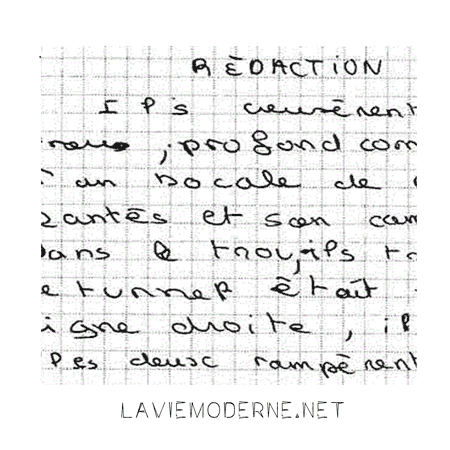 RÉDACTION
Ils creusèrent
, profond com
un bocale de
zantés et son cam
dans le trou, ils
e tunnel était
igne droite, il
les deux rampèrent
LAVIEMODERNE.NET